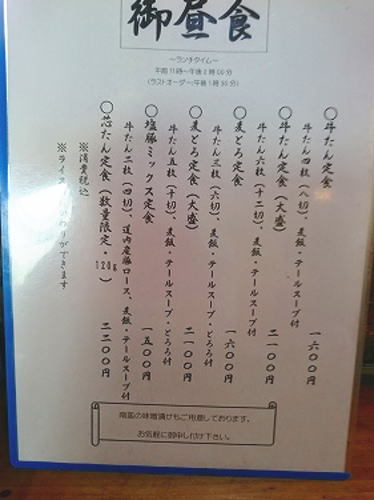 御昼食
～ランチタイム～
午前11時～午後2時00分
(ラストオーダー:午後1時50分)
○牛たん定食
牛たん四枚(八切)、麦飯・テールスープ付
一六〇〇円
○牛たん定食(大盛)
牛たん六枚(十二切)、麦飯・テールスープ付
二一〇〇円
○麦とろ定食
牛たん三枚(六切)、麦飯・テールスープ・とろろ付
一六〇〇円
○麦とろ定食(大盛)
牛たん五枚(十切)、麦飯・テールスープ・とろろ付
二一〇〇円
○塩豚ミックス定食
牛たん二枚(四切)、道内産豚ロース、麦飯・テールスープ付
一五〇〇円
○芯たん定食(数量限定・120g)
二二〇〇円
※消費税込
※ライスのおかわりができます
南蛮の味噌漬けもご用意しております。
お気軽に御申し付け下さい。